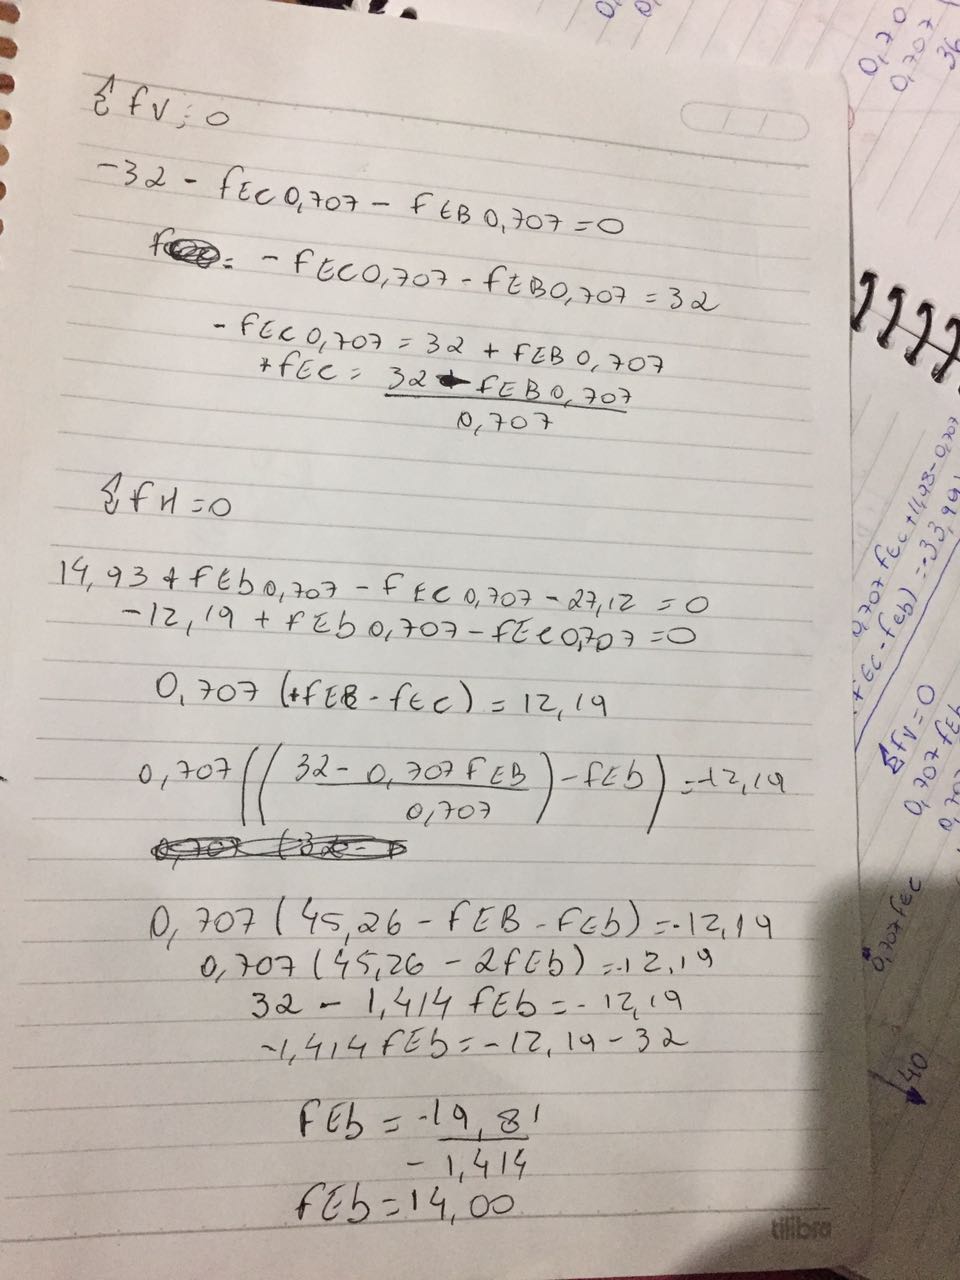 ΣfV=0
-32 - fEC0,707 - fEB0,707=0
- fEC0,707 - fEB0,707 = 32
- fEC0,707 = 32 + fEB0,707
+fEC = 32 - fEB0,707
0,707
ΣfH=0
14,93+fEb0,707 - fEC0,707-27,12=0
-12,19 + fEb0,707-fEC0,707=0
0,707 (+fEB - fEC) = 12,19
0,707((32 - 0,707fEB) - fEb) = -12,19
0,707
0,707 (45,26 - fEB - fEb) = -12,19
0,707(45,26 - 2fEb) = -12,19
32 - 1,414 fEb = -12,19
-1,414 fEb = -12,19-32
fEb = -19,81
-1,414
fEb = 14,00
tilibra
0,70
0,707
36
0,707 fEC + 14,98-0,707
+fEC-fEb) = -33,99
ΣfV=0
0,707 fEb
0,707 fEC
40